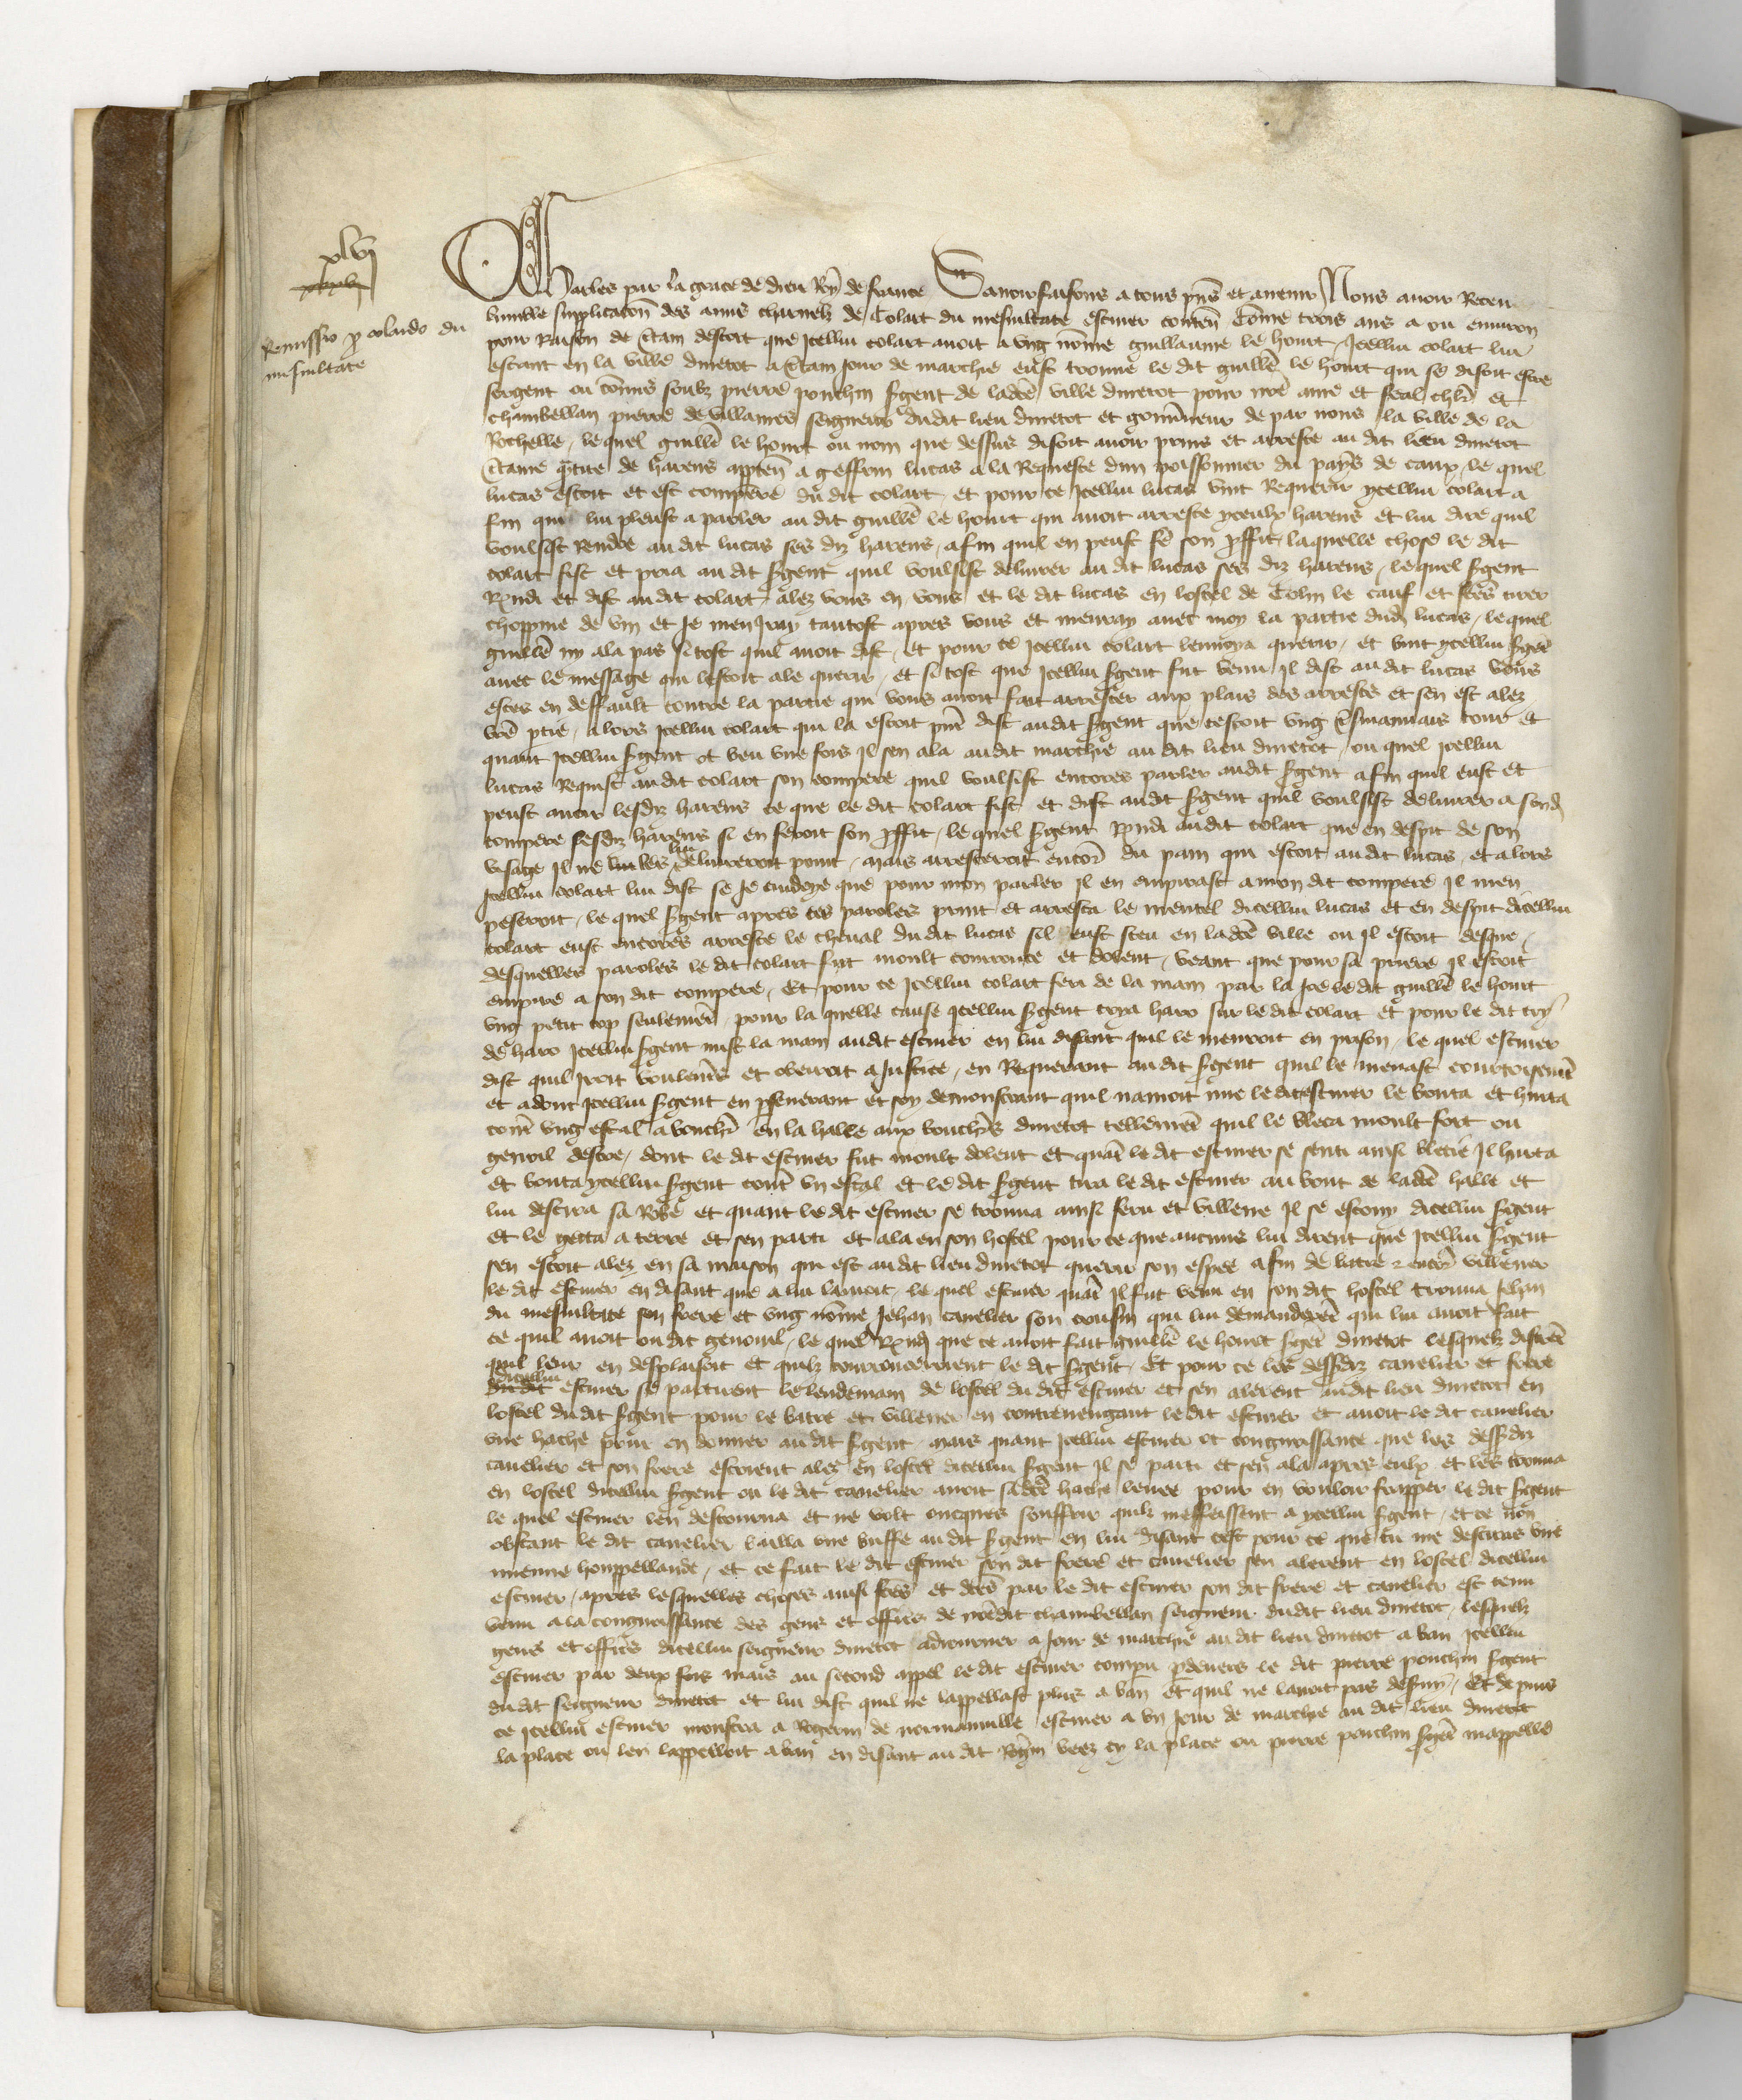 xlvj
xxxv
Remissio p colardo du
mesniltate
Charles par la grace de dieu Roy de france Savoir faisons a tous pñs et avenir Nous avoir Receu
humble supplicacoñ des amis charnelz de Colart du mesniltate escuier conteñ Cõme trois ans a ou environ
pour Raison de ctain descort que Jcellui colart avoit a ung nõme guillaume le hourt Jcellui colart lui
estant en la ville divetot a ctain Jour de marchie eust trouve le dit guillẽ le hourt qui se disoit estre
sergent ou cõmis soubz pierre pouchin sgent de ladcẽ ville divetot pour nrẽ ame et feal chlr et
chambellan pierre de villaines seigneur dudit lieu divetot et gouvneur de par nous la ville de la
Rochelle, le quel guillẽ le hourt ou nom que dessus disoit avoir prins et arreste au dit lieu divetot
ctaine qtite de harens appteñ a geffrin lucas a la Requeste dun poissonnier du pays de caux, le quel
lucas estoit et est compere du dit colart et pour ce Jcellui lucas vint Requerir ycellui colart a
fin qui lui pleust a parler au dit guillẽ le hourt qui avoit arreste yceulx harens et lui dire quil
voulsist Rendre au dit lucas ses diz harens, afin quil en peust fẽ son pffit, laquelle chose le dit
colart fist et pria au dit sgent quil voulsist delivrer au dit lucas ses diz harens, le quel sgent
Rndi et dist au dit colart alez vous en vous et le dit lucas en lostel de Colin le cauf et ftẽs tirer
choppine de vin et Je men Jray tantost apres vous et menray avec moy la partie dudj lucas, le quel
guillẽ ny ala pas si tost quil avoit dist, et pour ce Jcellui colart lenvoya querir, et vint ycellui sgẽt
avec le message qui lestoit ale querir, et si tost que Jcellui sgent fut venu Jl dist au dit lucas vous
estes en deffault contre la partie qui vous avoit fait arrester aux plais des arrestes et sen est alez
vrẽ ptie, alors Jcellui colart qui la estoit pñt dist audit sgent que cestoit ung tsmauvais tour et
quant Jcellui sgent ot beu une fois Jl sen ala audit marchie au dit lieu divetot, ou quel Jcellui
lucas Requist audit colart son compere quil voulsist encores parler audit sgent afin quil eust et
peust avoir lesdiz harens ce que le dit colart fist et dist audit sgent quil voulsist delivrer a sondj
compere sesdiz harens si en feroit son pffit, le quel sgent Rndi audit colart que en despit de son
visage Jl ne lui les lui delivreroit point, mais arresteroit encor du pain qui estoit au dit lucas, et alors
Jcellui colart lui dist se Je cuidoye que pour mon parler Jl en empirast a mon dit compere Jl men
peseroit, le quel sgent apres ces paroles print et arresta le mentel dicellui lucas et en despit dicellui
colart eust encores arreste le cheval du dit lucas sil leust sceu en ladcẽ ville ou Jl estoit
desquelles paroles le dit colart fut moult courouce et dolent, veant que pour sa priere Jl estoit
empire a son dit compere, Et pour ce Jcellui colart feri de la main par la Joe le dit guillẽ le hourt
ung petit cop seulemẽt, pour la quelle cause Jcellui sgent cria haro sur le dit colart et pour le dit cry
de haro Jcellui sgent mist la main audit escuier en lui disant quil le menroit en prison, le quel escuier
dist quil Jroit voulentẽs et obeiroit a Justice, en Requerant au dit sgent quil le menast courtoisemẽt
et adont Jcellui sgent en pseverant et soy demonstrant quil namoit mie le dit escuier le bouta et hurta
contr ung estal a bouchr en la halle aux bouchrs divetot tellemẽt quil le bleca moult fort ou
genoil destre, dont le dit escuier fut moult dolent et quãt le dit escuier se senti ainsi blecie Jl hurta
et bouta ycellui sgent contr un estal et le dit sgent tira le dit escuier au bout de ladcẽ halle et
lui descira sa Robe et quant le dit escuier se trouva ainsi feru et villene Jl se escouy dicellui sgent
et le gecta a terre et sen parti et ala en son hostel pour ce que aucuns lui dirent que Jcellui sgent
sen estoit alez en sa maison qui est au dit lieu divetot querir son espee afin de batre et encor villener
le dit escuier en disant que a lui lauroit, le quel escuier quãt Jl fut venu en son dit hostel trouva Jehan
du mesniltate son frere et ung nõme Jehan cavelier son cousin qui lui demanderẽt qui lui avoit fait
ce quil avoit ou dit genouil, le quel Rndj que ce avoit fait guillẽ le hourt sgẽt divetot lesquelz distrẽt
quil leur en desplaisoit et quilz courouceroient le dit sgent, Et pour ce les dessdiz cavelier et frere
du dit dicellui escuier se partirent le lendemain de lostel du dit escuier et sen alerent audit lieu divetot en
lostel du dit sgent pour le batre et villener en contrevengant le dit escuier et avoit le dit cavelier
une hache pour en donner au dit sgent, mais quant Jcellui escuier ot congnoissance que les dessdiz
cavelier et son frere estoient alez en lostel dicellui sgent Jl se parti et sen ala apres eulx et les trouva
en lostel dicellui sgent ou le dit cavelier avoit sadcẽ hache levee pour en vouloir frapper le dit sgent
le quel escuier len destourna et ne volt oncques souffrir quilz meffeissent a ycellui sgent, et ce non
obstant le dit cavelier bailla une buffe au dit sgent en lui disant cest pour ce que tu me desciras une
mienne houppellande, et ce fait le dit escuier son dit frere et cavelier sen alerent en lostel dicellui
escuier, apres lesquelles choses ainsi ftẽs et dcẽs par le dit escuier son dit frere et cavelier est tenu
venu a la congnoissance des gens et officrs de nrẽdit chambellan seigneur dudit lieu divetot, lesquelz
gens et officrs dicellui seigneur divetot adiourner a Jour de marchie au dit lieu divetot a ban Jcellui
escuier par deux fois mais au second appel le dit escuier compu pdevers le dit pierre pouchin sgent
du dit seigneur divetot et lui dist quil ne lappellast plus a ban et quil ne lavoit pas desuy, Et depuis
ce Jcellui escuier monstra a Rogerin de normanville escuier a un Jour de marchie au dit lieu divetot
la place ou len lappelloit a ban en disant au dit Rogin veez cy la place ou pierre pouchin sgẽt mappelle